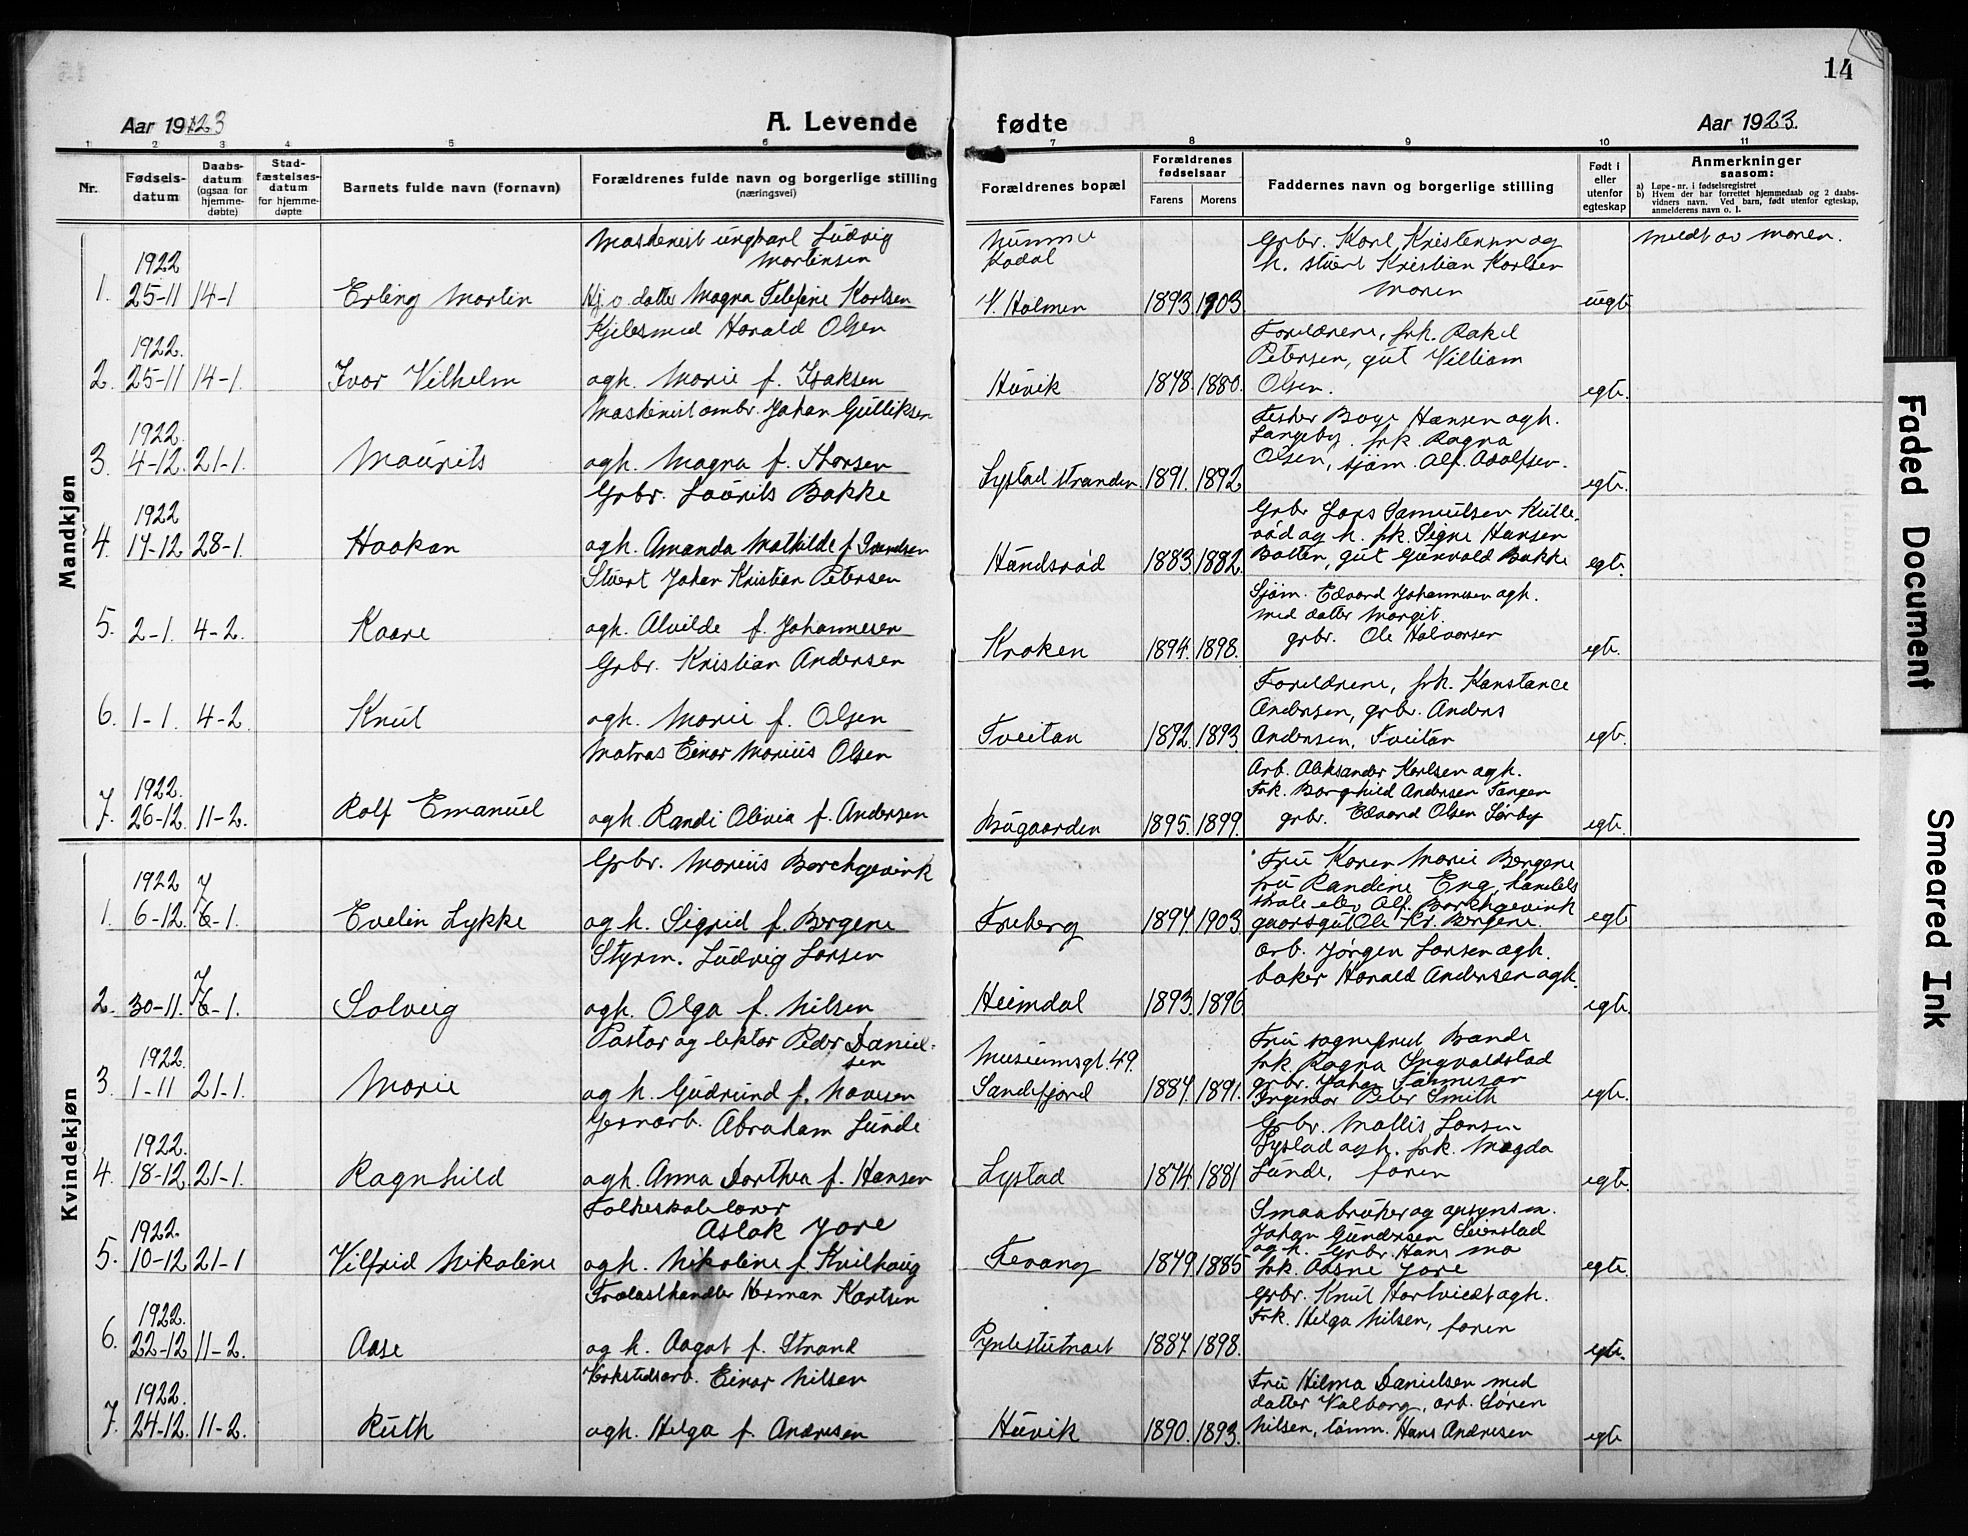 14
Aar 1923
A. Levende
fødte
Aar 1923.
1 2 3 4 5 6 7 8 9 10 11
Nr.
Fødsels-
datum
Daabs-
datum
(ogsaa for
hjemme-
døbte)
Stad-
fæstelses-
datum
for hjemme-
døpte
Barnets fulde navn (fornavn)
Forældrenes fulde navn og borgerlige stilling
(næringsvei)
Forældrenes bopæl
Forældrenes
fødselsaar
Farens
Morens
Faddernes navn og borgerlige stilling
Født i
eller
utenfor
egteskap
Anmerkninger
saasom:
a) Løpe-nr. i fødselsregistret
b) Hvem der har forrettet hjemmedaab og 2 daabs-
vidners navn. Ved barn, født utenfor egteskap,
anmelderens navn o. l.
Mandkjøn
Maskinist ungkarl Ludvig
Martinsen
1. 1922 25-11 14-1 Erling Martin
Hj.v. datter Magna Karlsen
Kodal
V. Holmen 1893. 1903.
Grbr. Karl Kristensen og
h. stuert Kristian Karlsen
Moren
uegt.
Meldt av moren.
Kjelesmed Harald Olsen
2. 1922. 25-11 14-1. Ivar Vilhelm
og h. Marie f. Isaksen
Huvik 1878. 1880.
Forældrene, frk. Rakel
Petersen, gut Villiam
Olsen.
egte.
Maskinist ombr. Johan Gulliksen
3. 1922. 4-12. 21-1. Maurits
og h. Magna f. Thorsen
Lystad stranden 1891. 1892
Hansen og h.
frk. Ragna
Olsen, sjøm. Alf. Adolfsen.
egte.
Grbr. Laurits Bakke
4. 1922 17-12 28-1. Haakan
og h. Amanda Mathilde f. Svendsen
Hundsrød 1883. 1882.
Grbr Lars Samuelsen Kulle-
rød og h. frk. Signe Hansen
gut Gunvald Bakke
egte.
Stuert Johan Kristian Petersen
5. 2-1. 4-2. Kaare
og h. Alvilde f. Johannesen
Kroken 1894. 1898.
Sjøm. Edvard Johannesen og h.
med datter Margit.
grbr. Ole Halvorsen
egte.
Grbr. Kristian Andersen
6. 1-1. 4-2. Knut
og h. Marie f. Olsen
Tveitan 1892. 1893.
Forældrene, frk. Konstance
Andersen, grbr. Anders
Andersen, Tveitan
egte.
Matros Einar Marius Olsen
7. 1922. 26-12. 11-2. Rolf Emanuel
og h. Randi Olivia f. Andersen
Bugaarden 1895. 1899.
Arb. Aleksander Karlsen og h.
Frk. Borghild Andersen Tangen
grbr. Edvard Olsen Sørby
egte.
Kvindekjøn
Grbr. Marius Borchgevink
1. 1922 6-12. 7 6-1. Evelin Lykke
og h. Sigrid f. Bergene
Freberg 1894. 1903.
Fru Karen Marie Bergene
fru Randine Eng, handels
skole elev Alf. Borchgevink
gaardsgut Ole Kr. Bergene.
egte
Styrm. Ludvig Larsen
2. 30-11. 7 6-1. Solveig
og h. Olga f. Nilsen
Heimdal 1893. 1896
arb. Jørgen Larsen og h.
baker Harald Andersen og h.
egte.
Pastor og lektor Peder Daniel-
sen
3. 1922. 1-11 21-1. Marie
og h. Gudrund f.
Museumsgt. 49.
Sandefjord 1884. 1891.
Fru sogneprest Bande
frk. Ragna Ingvaldstad
grbr. Johan
Ingeniør Peter Smith
egte.
Jernarb. Abraham Lunde
4. 1922. 18-12. 21-1. Ragnhild
og h. Anna Dorthea f. Hansen
Lystad 1874. 1881
Grbr. Mathis Larsen
Lystad og h. frk. Magda
Lunde, faren
egte.
Folkeskolelærer
Aslak Jore
5. 1922. 10-12 21-1 Vilfrid Nikoline
og h. Nikoline f. Kvilhaug
Fevang 1879. 1885
Smaabruker og opsynsm.
Johan Gundersen
og h. Grbr. Hans Mo
frk. Aasne Jore
egte.
Trælasthandler Herman Karlsen
6. 1922. 22-12 11-2. Aase
og h. Aagot f. Strand
1887. 1898.
Grbr. Knut Hartviedt og h.
Frk. Helga Nilsen, faren
egte.
Verkstedsarb. Einar Nilsen
7. 1922. 24-12. 11-2. Ruth
og h. Helga f. Andresen
Huvik 1890. 1893.
Fru Hilma Danielsen med
datter Valborg, arb. Søren
Nilsen, tømm. Hans Andresen
egte
Faded Document
Smeared Ink